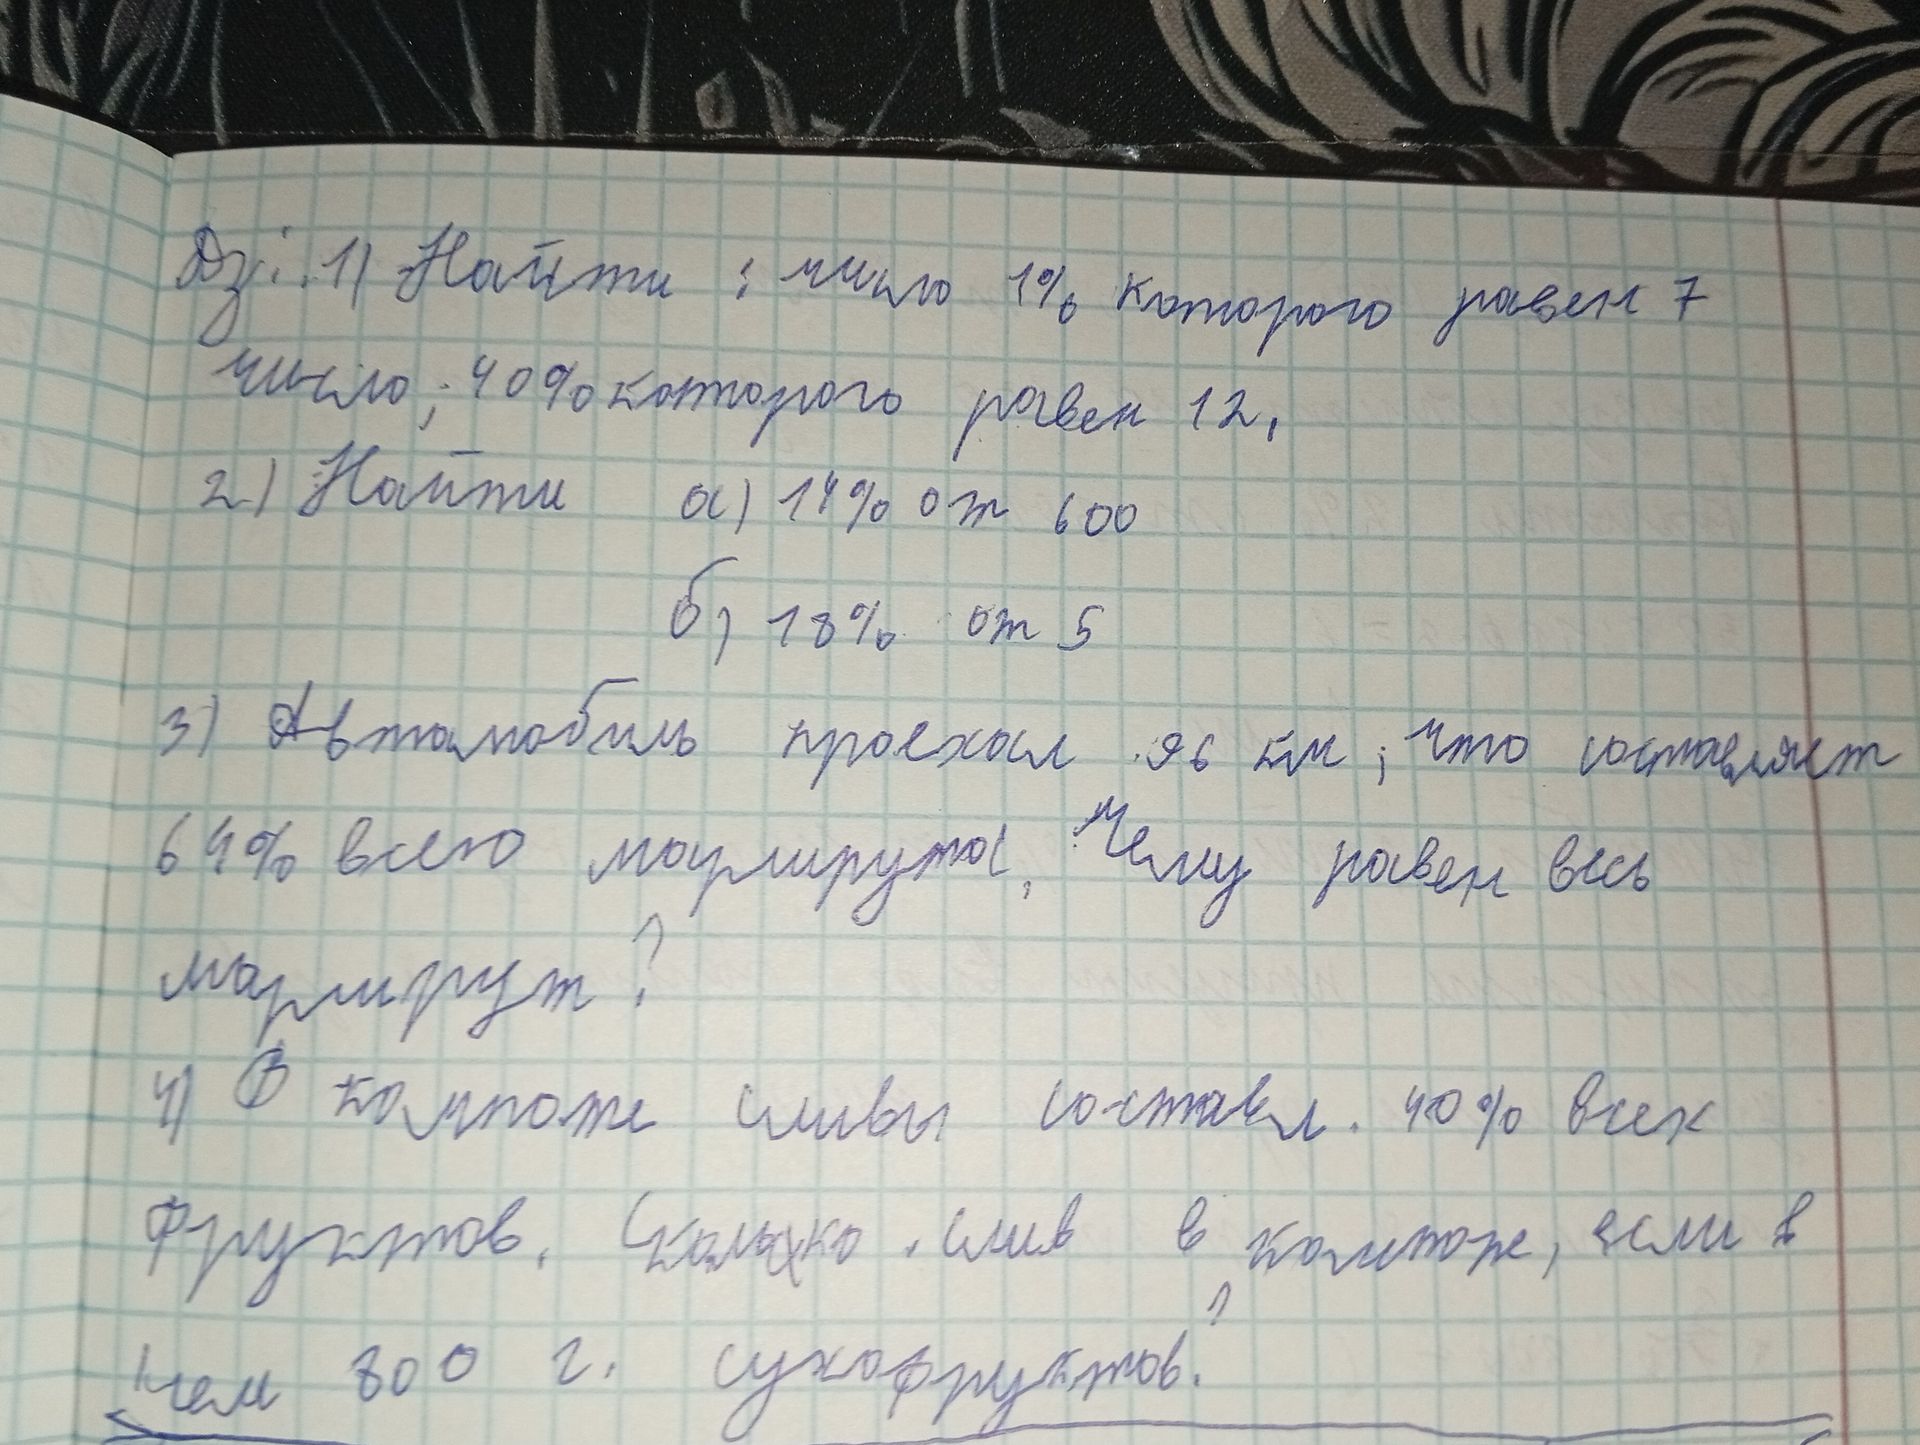 Дз: 1) Найти: число 1% которого равен 7
число, 40% которого равен 12.
2) Найти а) 14% от 600
б) 18% от 5
3) Автомобиль проехал 96 км, что составляет
64% всего маршрута, Чему равен весь
маршрут?
4) В компоте сливы составл. 40% всех
фруктов. Сколько слив в компоте, если в
нем 800 г. сухофруктов?